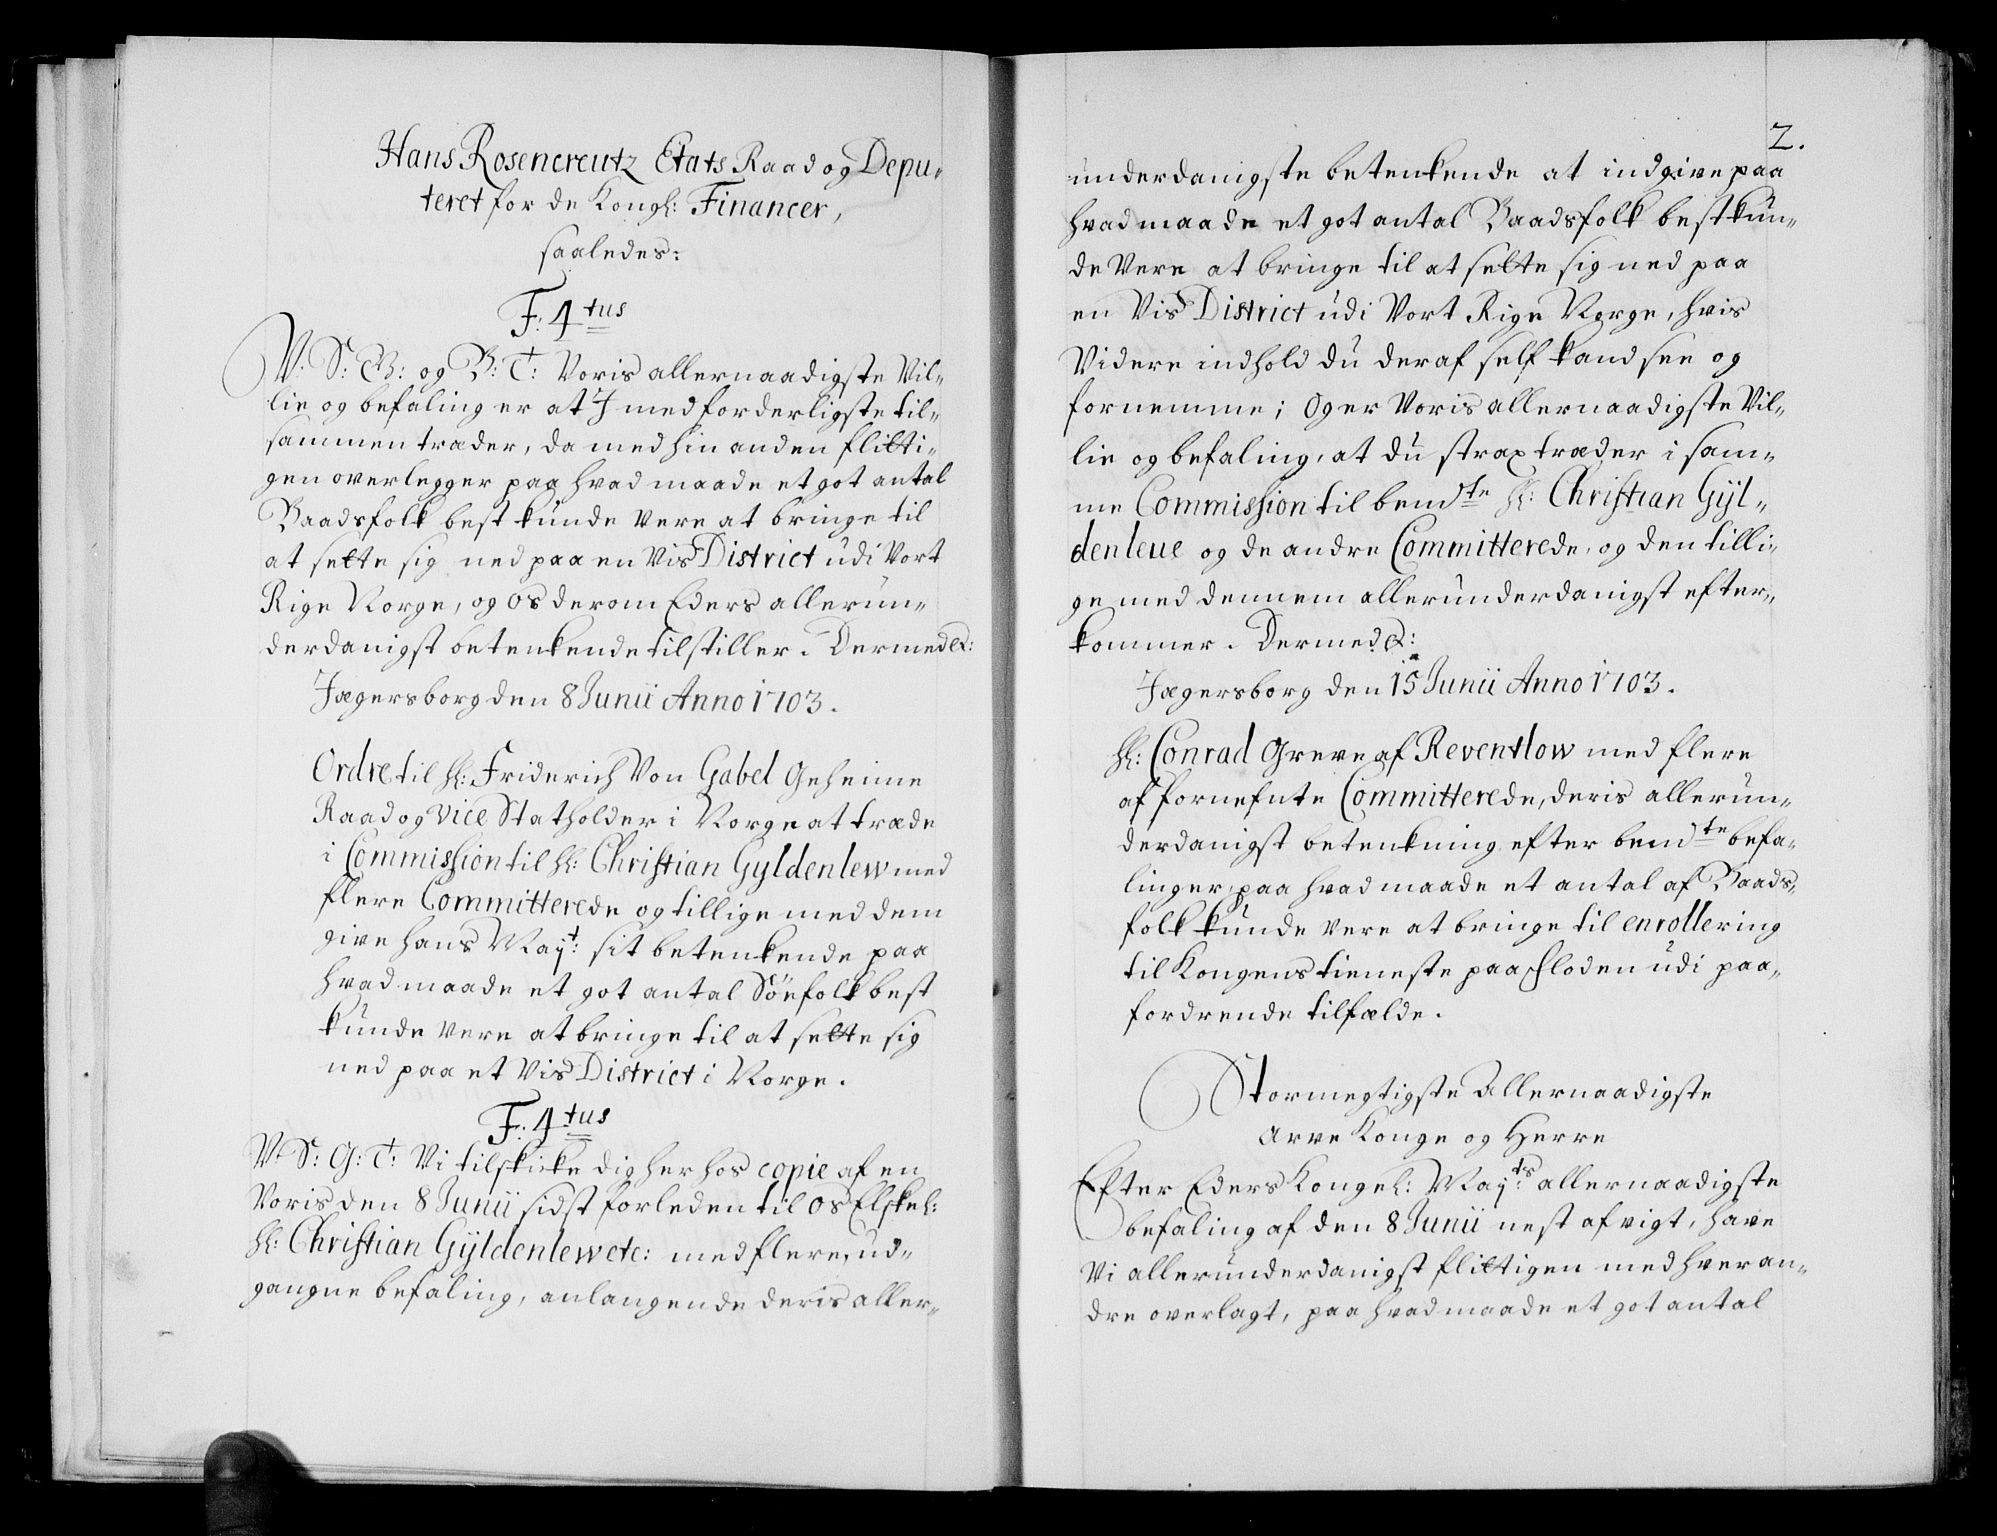 Hans Rosencreutz Etats Raad og Depu-
teret for de Kongl: Financer,
saaledes:
F: 4tus
V. S: G: og B: T: Voris allernaadigste Vil-
lie og befaling er at I med forderligste til-
sammen træder, da med hin anden flitti-
gen overlegger paa hvad maade et got antal
Baadsfolk best kunde vere at bringe til
at sette sig ned paa en Vis District udi Vort
Rige Norge, og os derom Eders allerun-
derdanigst betenkende tilstiller. Dermed &:
Jægersborg den 8 Junii Anno 1703.
Ordre til Hl: Friderich Von Gabel Geheime
Raad og Vice Statholder i Norge at træde
i Commission til Hl: Christian Gyldenlew med
flere Committerede og tillige med dem
give hans Mayt: sit betenkende paa
hvad maade et got antal Söefolk best
kunde vere at bringe til at sette sig
ned paa et Vis District i Norge.
F: 4tus
V: S: G: T: Vi tilskicke dig her hos copie af en
Voris den 8 Junii sidst forleden til os Elskel:
Hl: Christian Gyldenlew etc: med flere, ud-
gangne befaling, anlangende deris aller-
2.
underdanigste betenkende at indgive paa
hvad maade et got antal Baadsfolk best kun-
de Vere at bringe til at sette sig ned paa
en Vis District udi Vort Rige Norge, hvis
Videre indhold du deraf self kand see og
fornemme; Og er Voris allernaadigste Vil-
lie og befaling, at du strax træder i sam-
me Commission til bemdte Hl: Christian Gyl-
denleue og de andre Committerede, og den tilli-
ge med dennem allerunderdanigst efter-
kommer. Dermed &:
Jægersborg den 15 Junii Anno 1703.
Hl: Conrad Greve af Reventlow med flere
af fornefnte Committerede, deris allerun-
derdanigst betenkning efter bemdte befa-
linger, paa hvad maade et antal af Baads-
folk kunde vere at bringe til enrollering
til Kongens tieneste paa Floden udi paa-
fordrende tilfælde.
Stormegtigste Allernaadigste
Arve Konge og Herre
Efter Eders Kongel: Mayts: allernaadigste
befaling af den 8 Junii nest afvigt, have
Vi allerunderdanigst flittigen med hveran-
dre overlagt, paa hvad maade et got antal